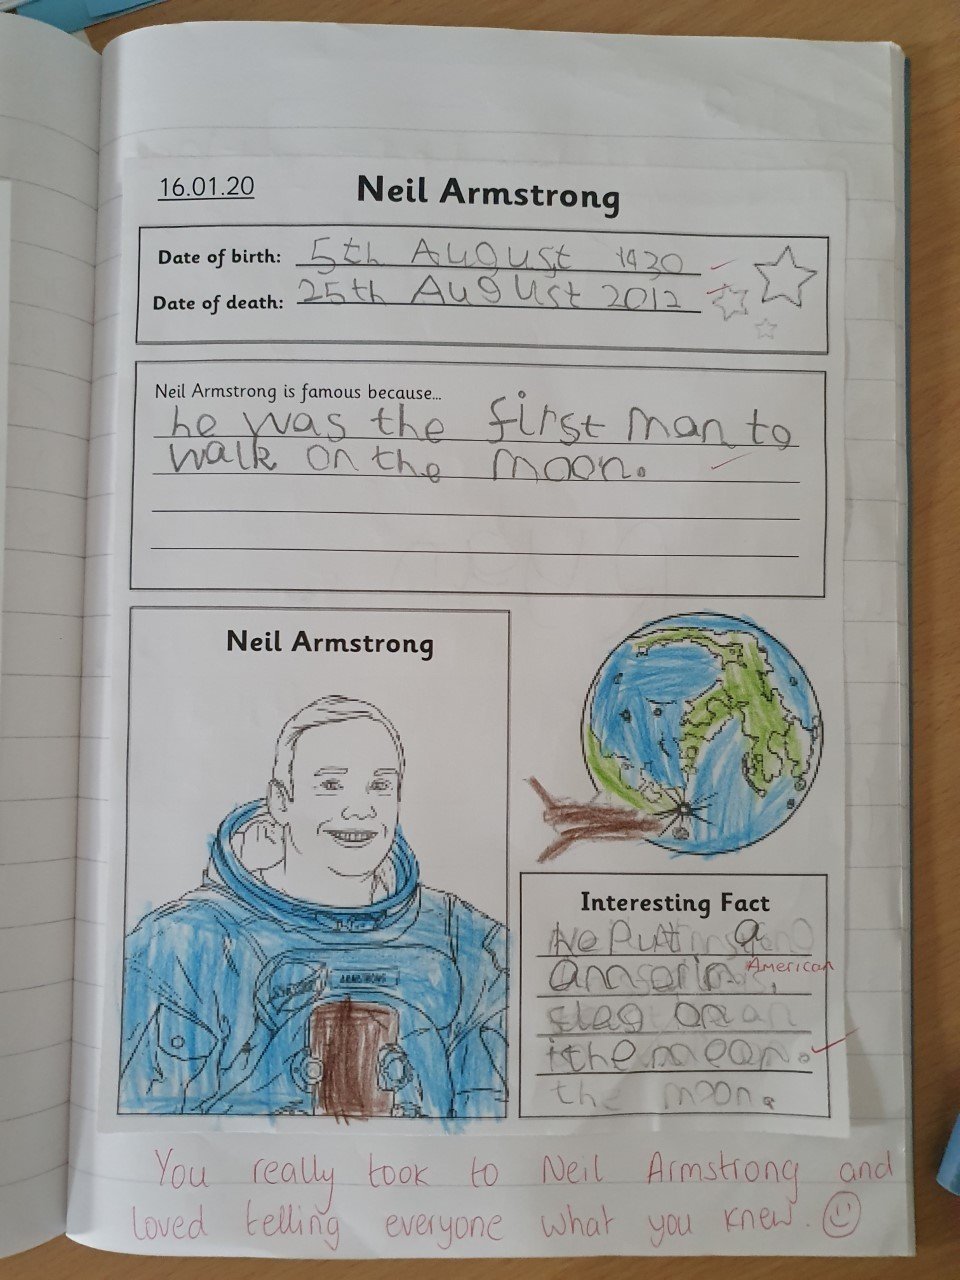 16.01.20
Neil Armstrong
Date of birth: 5th August 1930
Date of death: 25th August 2012
Neil Armstrong is famous because...
he was the first man to
walk on the moon.
Neil Armstrong
ARMSTRONG
Interesting Fact
He Put a
American
flag on
the moon.
the moon.
You really took to Neil Armstrong and
loved telling everyone what you knew.